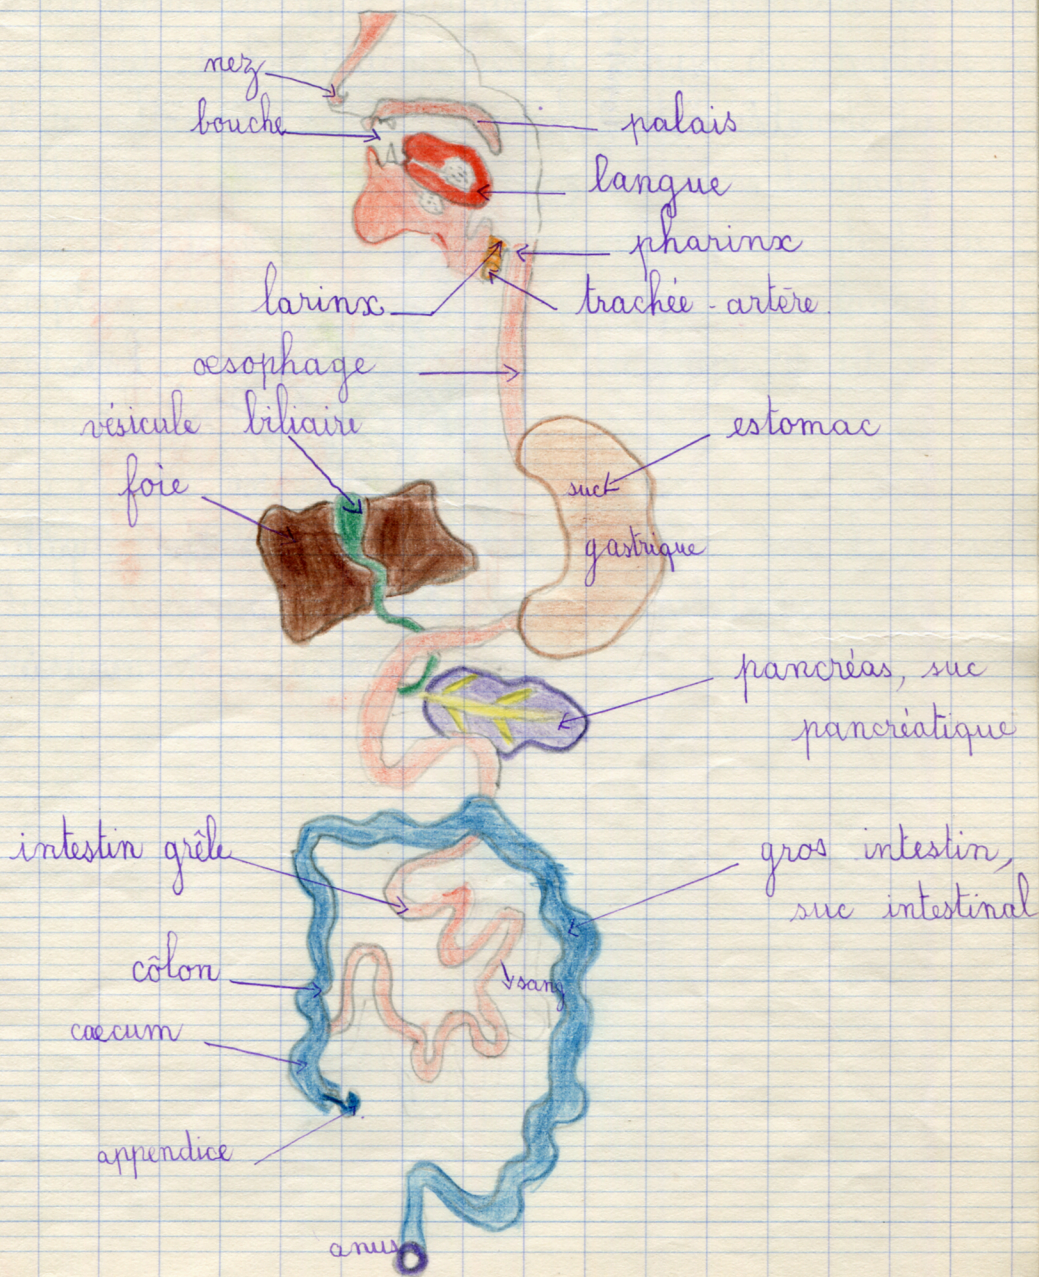 nez
bouche
palais
langue
pharinx
larinx
trachée-artère.
œsophage
vésicule biliaire
estomac
foie
suc
gastrique
pancréas, suc
pancréatique
intestin grêle
gros intestin,
suc intestinal
côlon
sang
caecum
appendice
anus